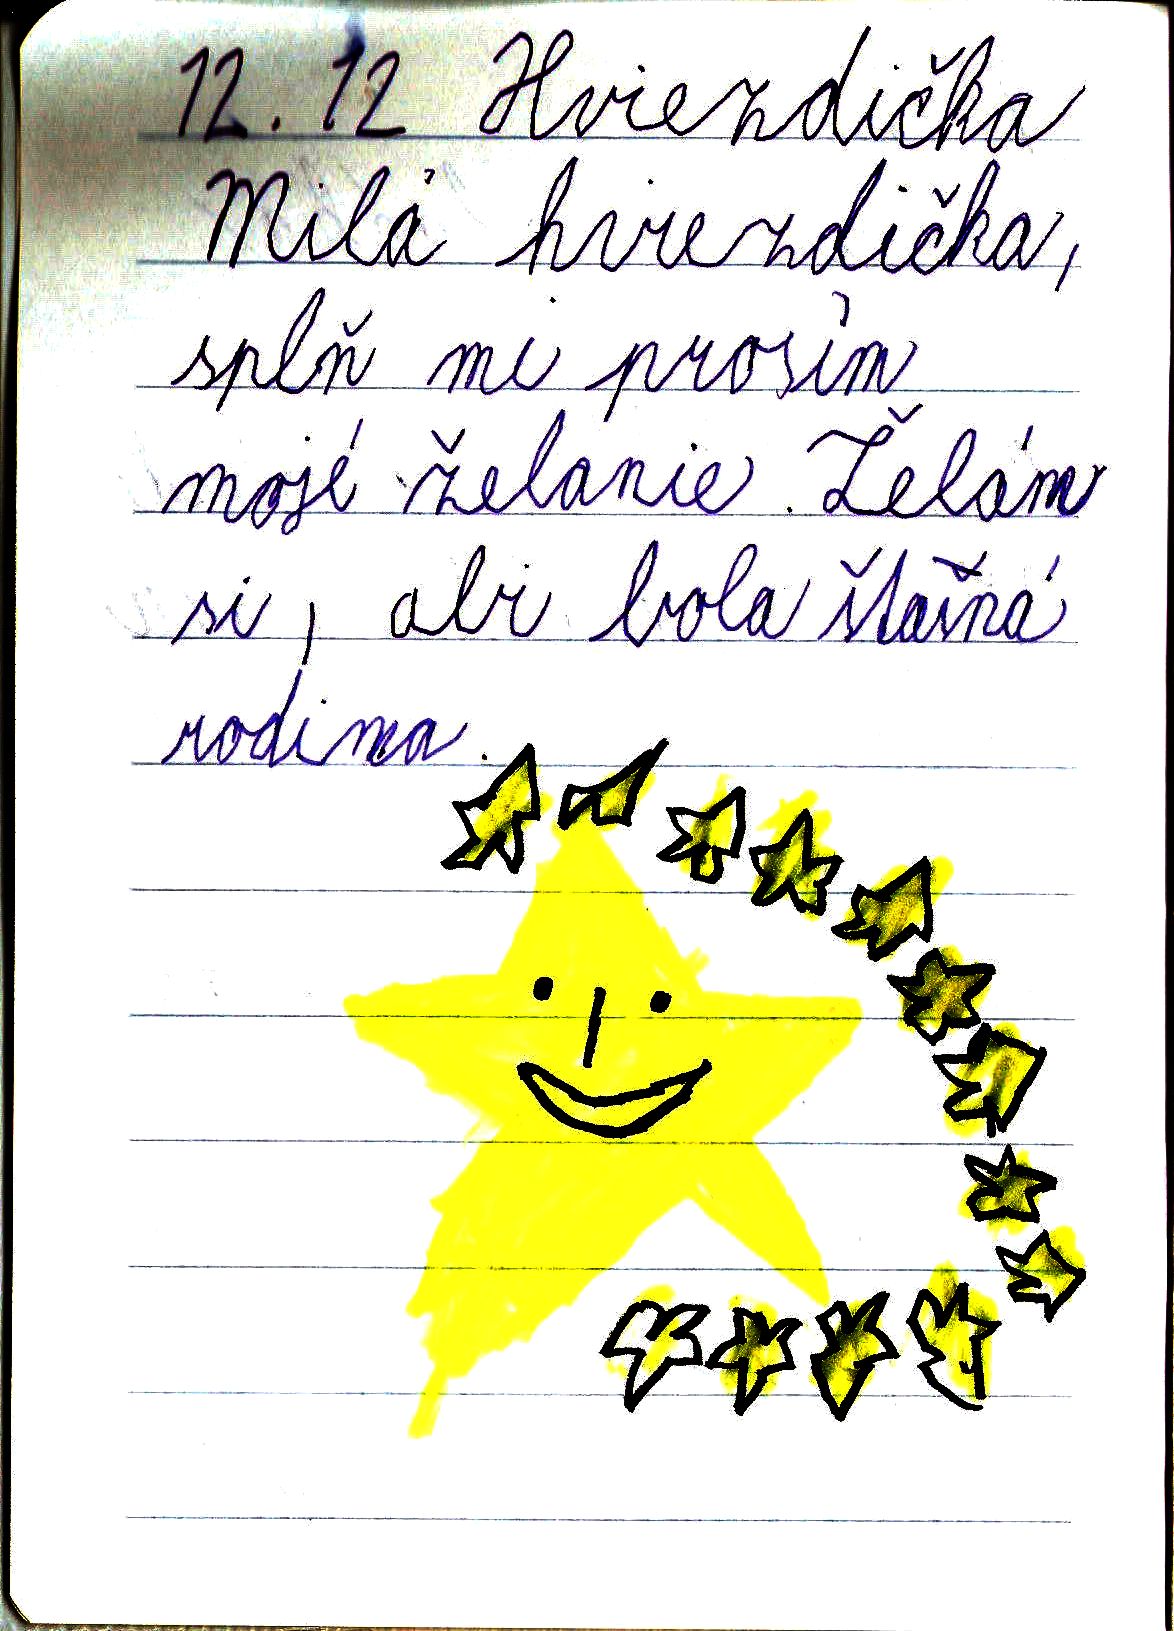 12. 12 Hviezdička
Milá hviezdička,
splň mi prosím
mojé želanie. Želám
si, abi bola štašná
rodina.